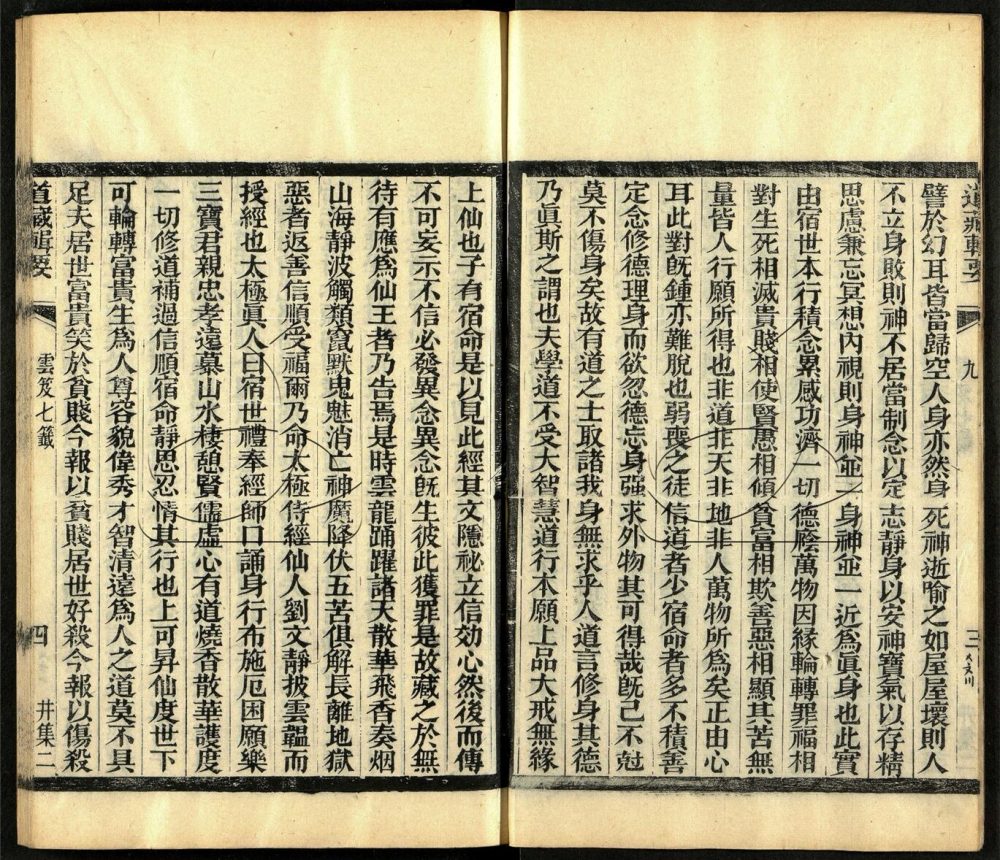 道藏輯要
九
三
譬於幻耳皆當歸空人身亦然身死神逝喻之如屋屋壞則人
不立身敗則神不居當制念以定志靜身以安神寶氣以存精
思慮兼忘冥想內視則身神竝一身神竝一近為眞身也此實
由宿世本行積念累感功濟一切德廕萬物因緣輪轉罪福相
對生死相滅貴賤相使賢愚相傾貧富相欺善惡相顯其苦無
量皆人行願所得也非道非天非地非人萬物所為矣正由心
耳此對旣鍾亦難脫也弱喪之徒信道者少宿命者多不積善
定念修德理身而欲忽德忘身强求外物其可得哉旣已不尅
莫不傷身矣故有道之士取諸我身無求乎人道言修身其德
乃眞斯之謂也夫學道不受大智慧道行本願上品大戒無緣
上仙也子有宿命是以見此經其文隱祕立信効心然後而傳
不可妄示不信必發異念異念旣生彼此獲罪是故藏之於無
待有應為仙王者乃告焉是時雲龍踊躍諸天散華飛香奏烟
山海靜波觸類寘默鬼魅消亡神廣降伏五苦俱解長離地獄
惡者返善信順受福爾乃命太極侍經仙人劉文靜披雲韞而
授經也太極眞人曰宿世禮奉經師口誦身行布施厄困願樂
三寶君親忠孝遠慕山水棲憩賢儒虛心有道燒香散華護度
一切修道補過信順宿命靜思忍情其行也上可昇仙度世下
可輪轉富貴生為人尊容貌偉秀才智清達為人之道莫不具
足夫居世富貴笑於貧賤今報以貧賤居世好殺今報以傷殺
道藏輯要
雲笈七籤
四
井集二